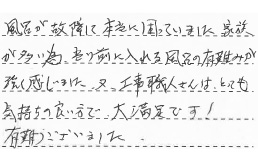 風呂が故障して本当に困っていました。家族
が多い為、当り前に入れる風呂の有難みが
強く感じました。又、工事職人さんは、とても
気持ちの良い方で、大満足です!
有難うございました。